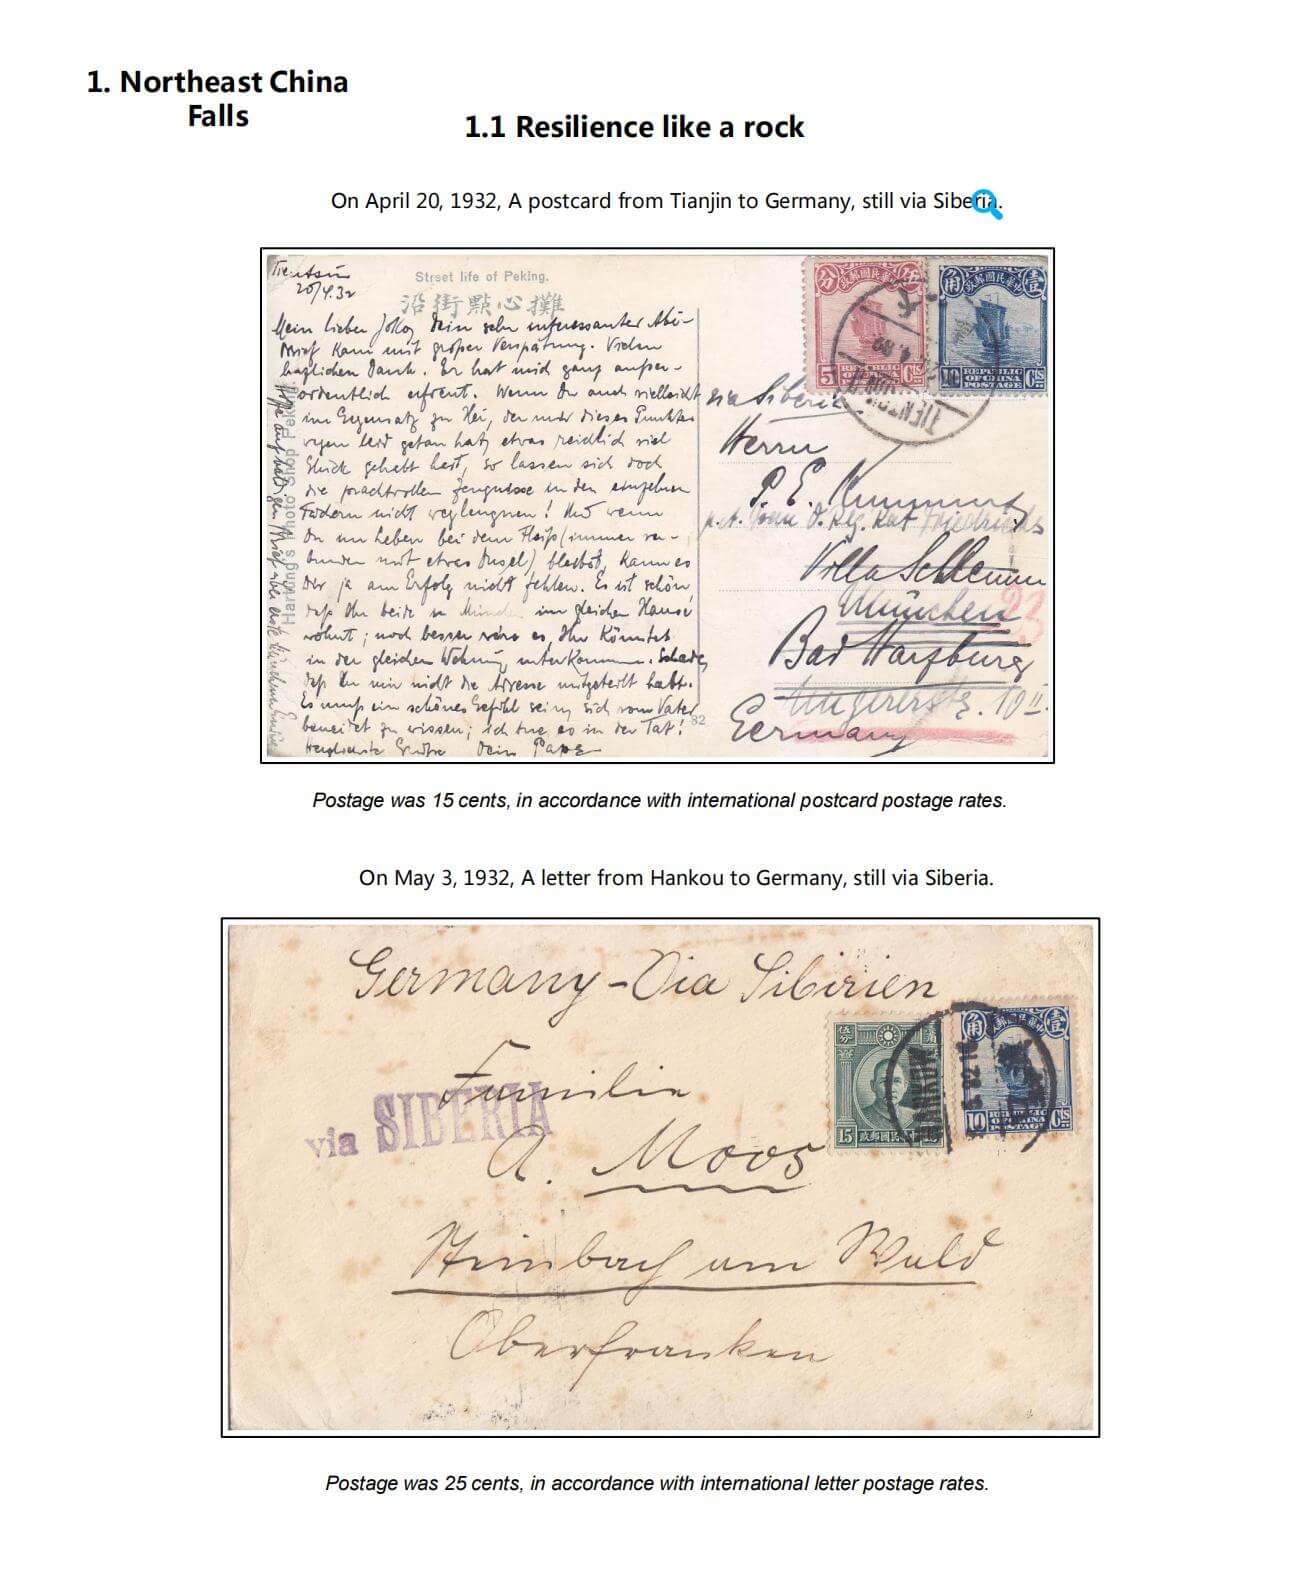 1. Northeast China
Falls
1.1 Resilience like a rock
On April 20, 1932, A postcard from Tianjin to Germany, still via Siberia.
Tientsin
20/4.32
Street life of Peking.
沿街點心攤
Mein lieber dein sehr interessanter
Brief kam mit großer Verspätung. Vielen
herzlichen Dank. Er hat mich ganz außer-
ordentlich erfreut. Wenn Du auch vielleicht
im Gegensatz zu der mir dieses Punktes
wegen leid getan hat, etwas reichlich viel
Glück gehabt hast, so lassen sich doch
die prachtvollen Zeugnisse in den einzelnen
Fächern nicht wegleugnen! Und wenn
Du nun neben bei dem Fleiß (immer ver-
bunden mit etwas Dusel) bleibst, kann es
Dir ja am Erfolg nicht fehlen. Es ist schön,
daß Ihr beide in im gleichen Hause
wohnt; noch besser wäre es, Ihr könntet
in der gleichen Wohnung unterkommen. Schade,
daß Du mir nicht die Adresse mitgeteilt habt.
Es muß ein schönes Gefühl sein, sich vom Vater
beneidet zu wissen; ich tue es in der Tat!
Herzlichste Grüße Dein Papa
Hartung's Photo Shop Peking
82
分 中華民國郵政 伍
5 REPUBLIC OF CHINA POSTAGE Cts
角 中華民國郵政 壹
10 REPUBLIC OF CHINA POSTAGE Cts
TIENTSIN
via Siberia
Herrn
P. E.
Friedrichs
Villa
München
23
Bad Harzburg
Ungererstr. 10 II
Germany
Postage was 15 cents, in accordance with international postcard postage rates.
On May 3, 1932, A letter from Hankou to Germany, still via Siberia.
Germany - Via Sibirien
伍分
15
角 中華民國郵政 壹
10 REPUBLIC OF CHINA POSTAGE Cts
HANKOW
Familie
via SIBERIA
A. Moos
Steinbach am Wald
Oberfranken
Postage was 25 cents, in accordance with international letter postage rates.